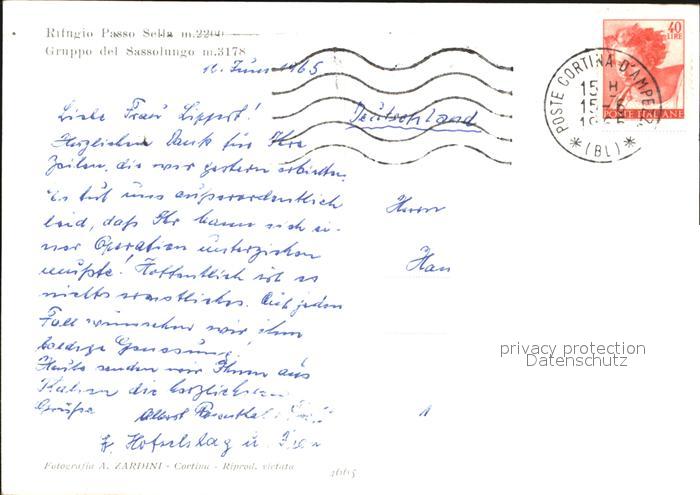 Rifugio Passo Sella m.2200
Gruppo del Sassolungo m.3178
Juni 1965
Liebe Frau Lippert!
Deutschland
Herzlichen Dank für Ihre
Zeilen, die wir gestern erhielten.
Es tut uns außerordentlich
leid, daß Ihr Mann sich ei-
ner Operation unterziehen
mußte! Hoffentlich ist es
nichts ernstliches. Auf jeden
Fall wünschen wir ihm
baldige Genesung!
Heute senden wir Ihnen aus
Italien die herzlichsten
Grüße
Albert Rosenthal
u. Frau
Herrn
Han
Fotografia A. ZARDINI - Cortina - Riprod. vietata
40
LIRE
POSTE ITALIANE
POSTE CORTINA D'AMPEZZO
15 H
15-6
(BL)
privacy protection
Datenschutz